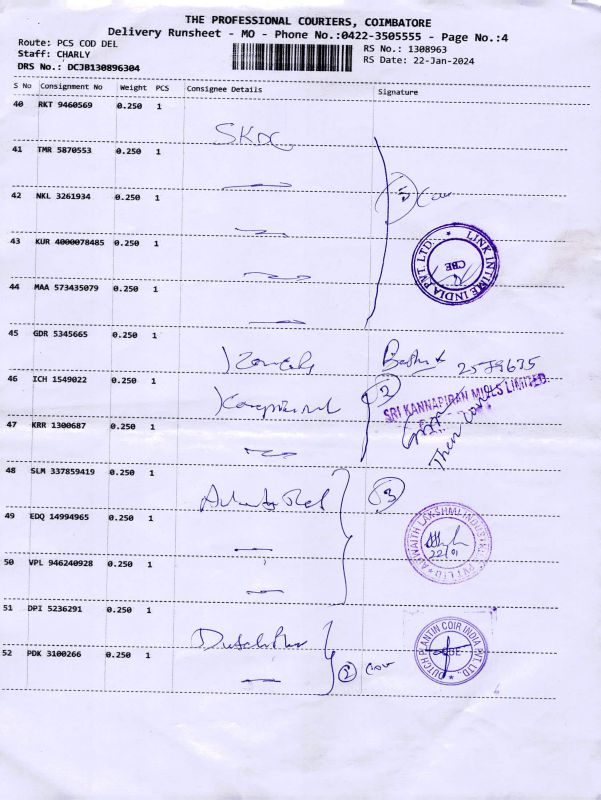 THE PROFESSIONAL COURIERS, COIMBATORE
Delivery Runsheet - MO - Phone No.:0422-3505555 - Page No.:4
Route: PCS COD DEL
RS No.: 1308963
Staff: CHARLY
RS Date: 22-Jan-2024
DRS No.: DCJB130896304
S No Consignment No Weight PCS Consignee Details Signature
40 RKT 9460569 0.250 1
41 TMR 5870553 0.250 1
5
42 NKL 3261934 0.250 1
43 KUR 4000078485 0.250 1
LINK INTIME INDIA PVT. LTD. * CBE
44 MAA 573435079 0.250 1
45 GDR 5345665 0.250 1
2579635
46 ICH 1549022 0.250 1
2
SRI KANNAPIRAN MILLS LIMITED
47 KRR 1300687 0.250 1
48 SLM 337859419 0.250 1
3
49 EDQ 14994965 0.250 1
LAKSHMI INDUSTRIES PVT LTD
22/01
50 VPL 946240928 0.250 1
51 DPI 5236291 0.250 1
DUTCH PLANTIN COIR INDIA PVT. LTD. CBE
52 PDK 3100266 0.250 1
2